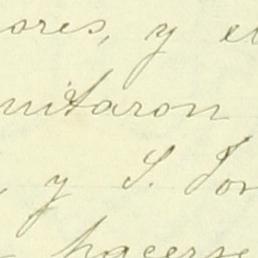 ores, y e
nitaron
, y S. Tor
hacerse